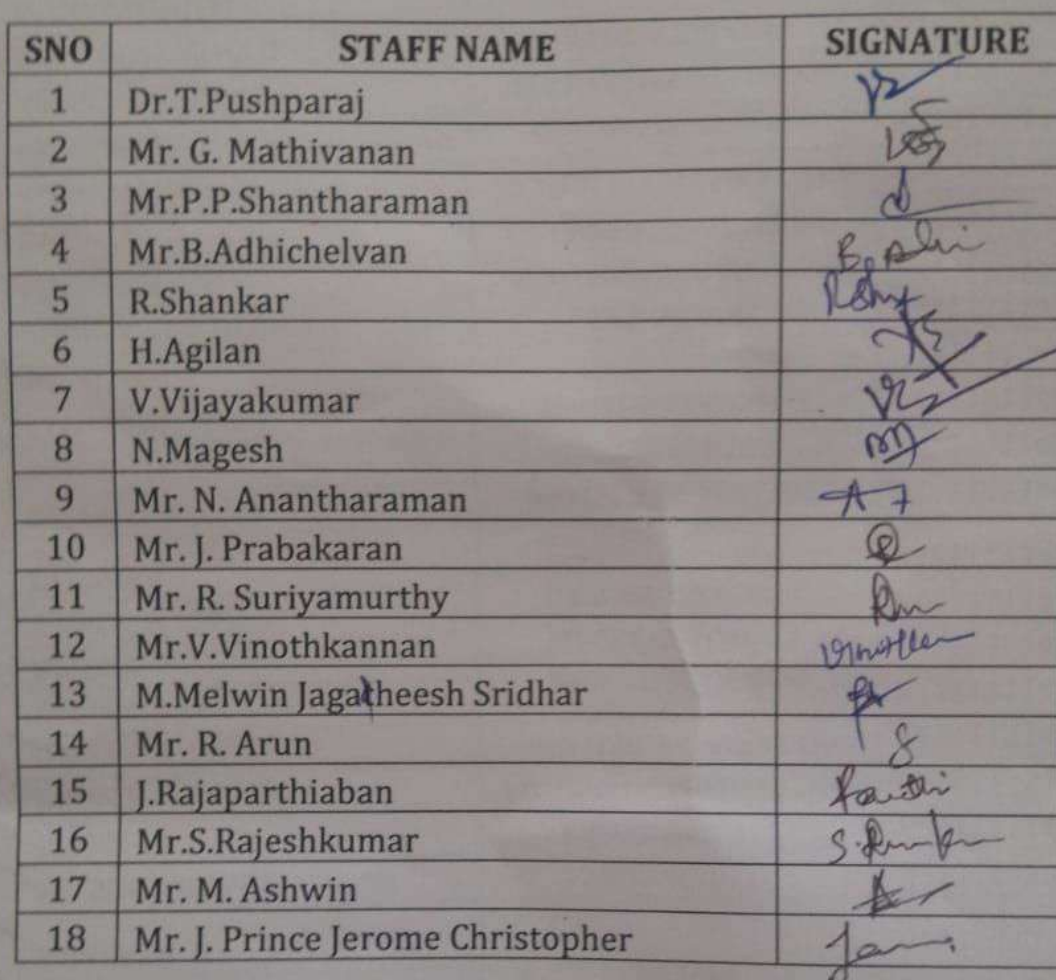 SNO STAFF NAME SIGNATURE
1 Dr.T.Pushparaj
2 Mr. G. Mathivanan
3 Mr.P.P.Shantharaman
4 Mr.B.Adhichelvan
5 R.Shankar
6 H.Agilan
7 V.Vijayakumar
8 N.Magesh
9 Mr. N. Anantharaman
10 Mr. J. Prabakaran
11 Mr. R. Suriyamurthy
12 Mr.V.Vinothkannan
13 M.Melwin Jagatheesh Sridhar
14 Mr. R. Arun
15 J.Rajaparthiaban
16 Mr.S.Rajeshkumar
17 Mr. M. Ashwin
18 Mr. J. Prince Jerome Christopher